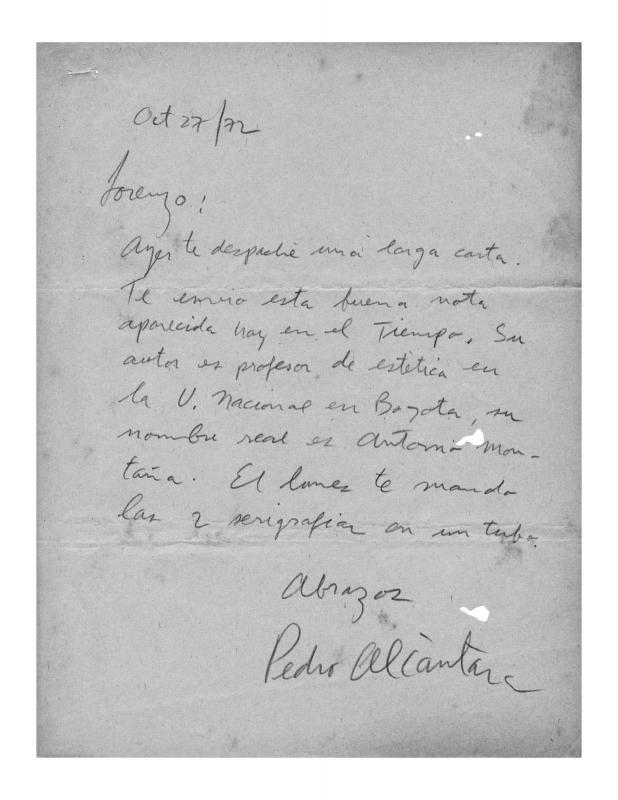 Oct 27/72
Lorenzo!
Ayer te despaché una larga carta.
Te envio esta buena nota
aparecida hoy en el Tiempo. Su
autor es profesor de estética en
la U. Nacional en Bogota, su
nombre real es Antonio Mon-
taña. El lunes te mando
las 2 serigrafias en un tubo.
Abrazos
Pedro Alcàntara